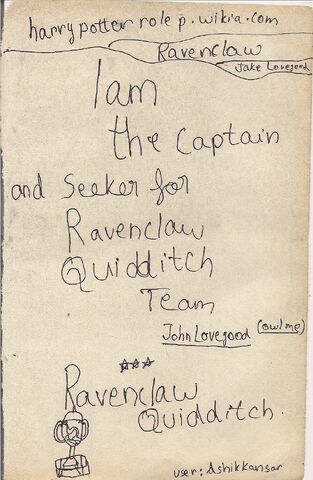 harry potter role p. wikia.com
Ravenclaw
Jake Lovegood
I am
the captain
and Seeker for
Ravenclaw
Quidditch
Team
John Lovegood (owl me)
Ravenclaw
Quidditch.
user: Ashikkansar